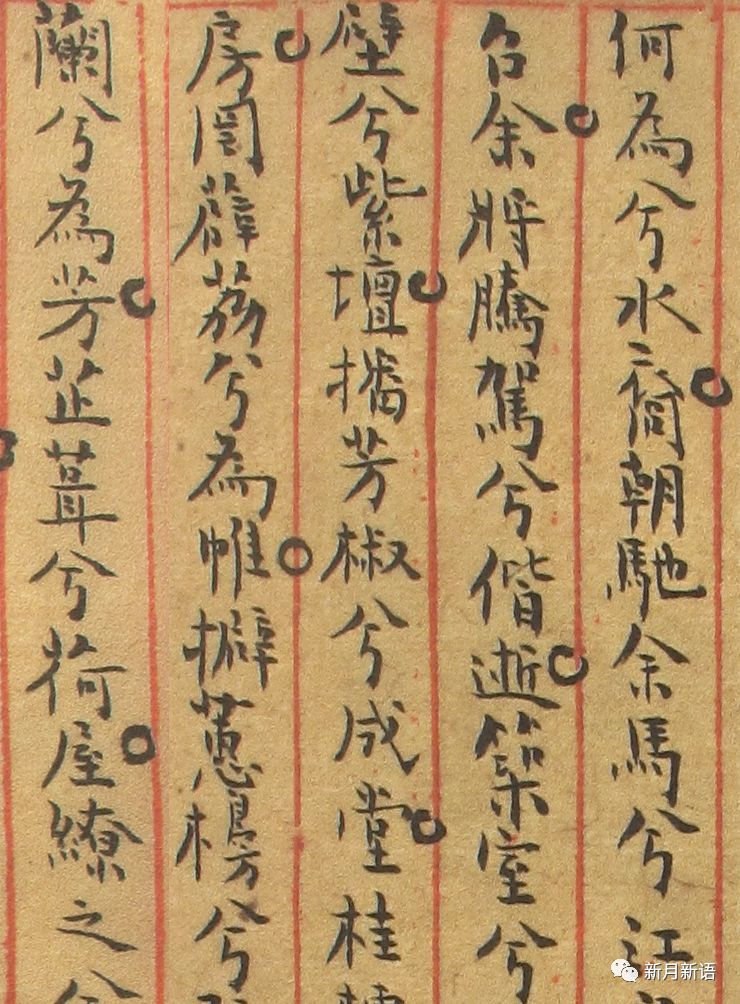 何為兮水裔朝馳余馬兮江
召余將騰駕兮偕逝築室兮
壁兮紫壇播芳椒兮成堂桂
房罔薜荔兮為帷擗蕙櫋兮
蘭兮為芳芷葺兮荷屋繚之兮
新月新语